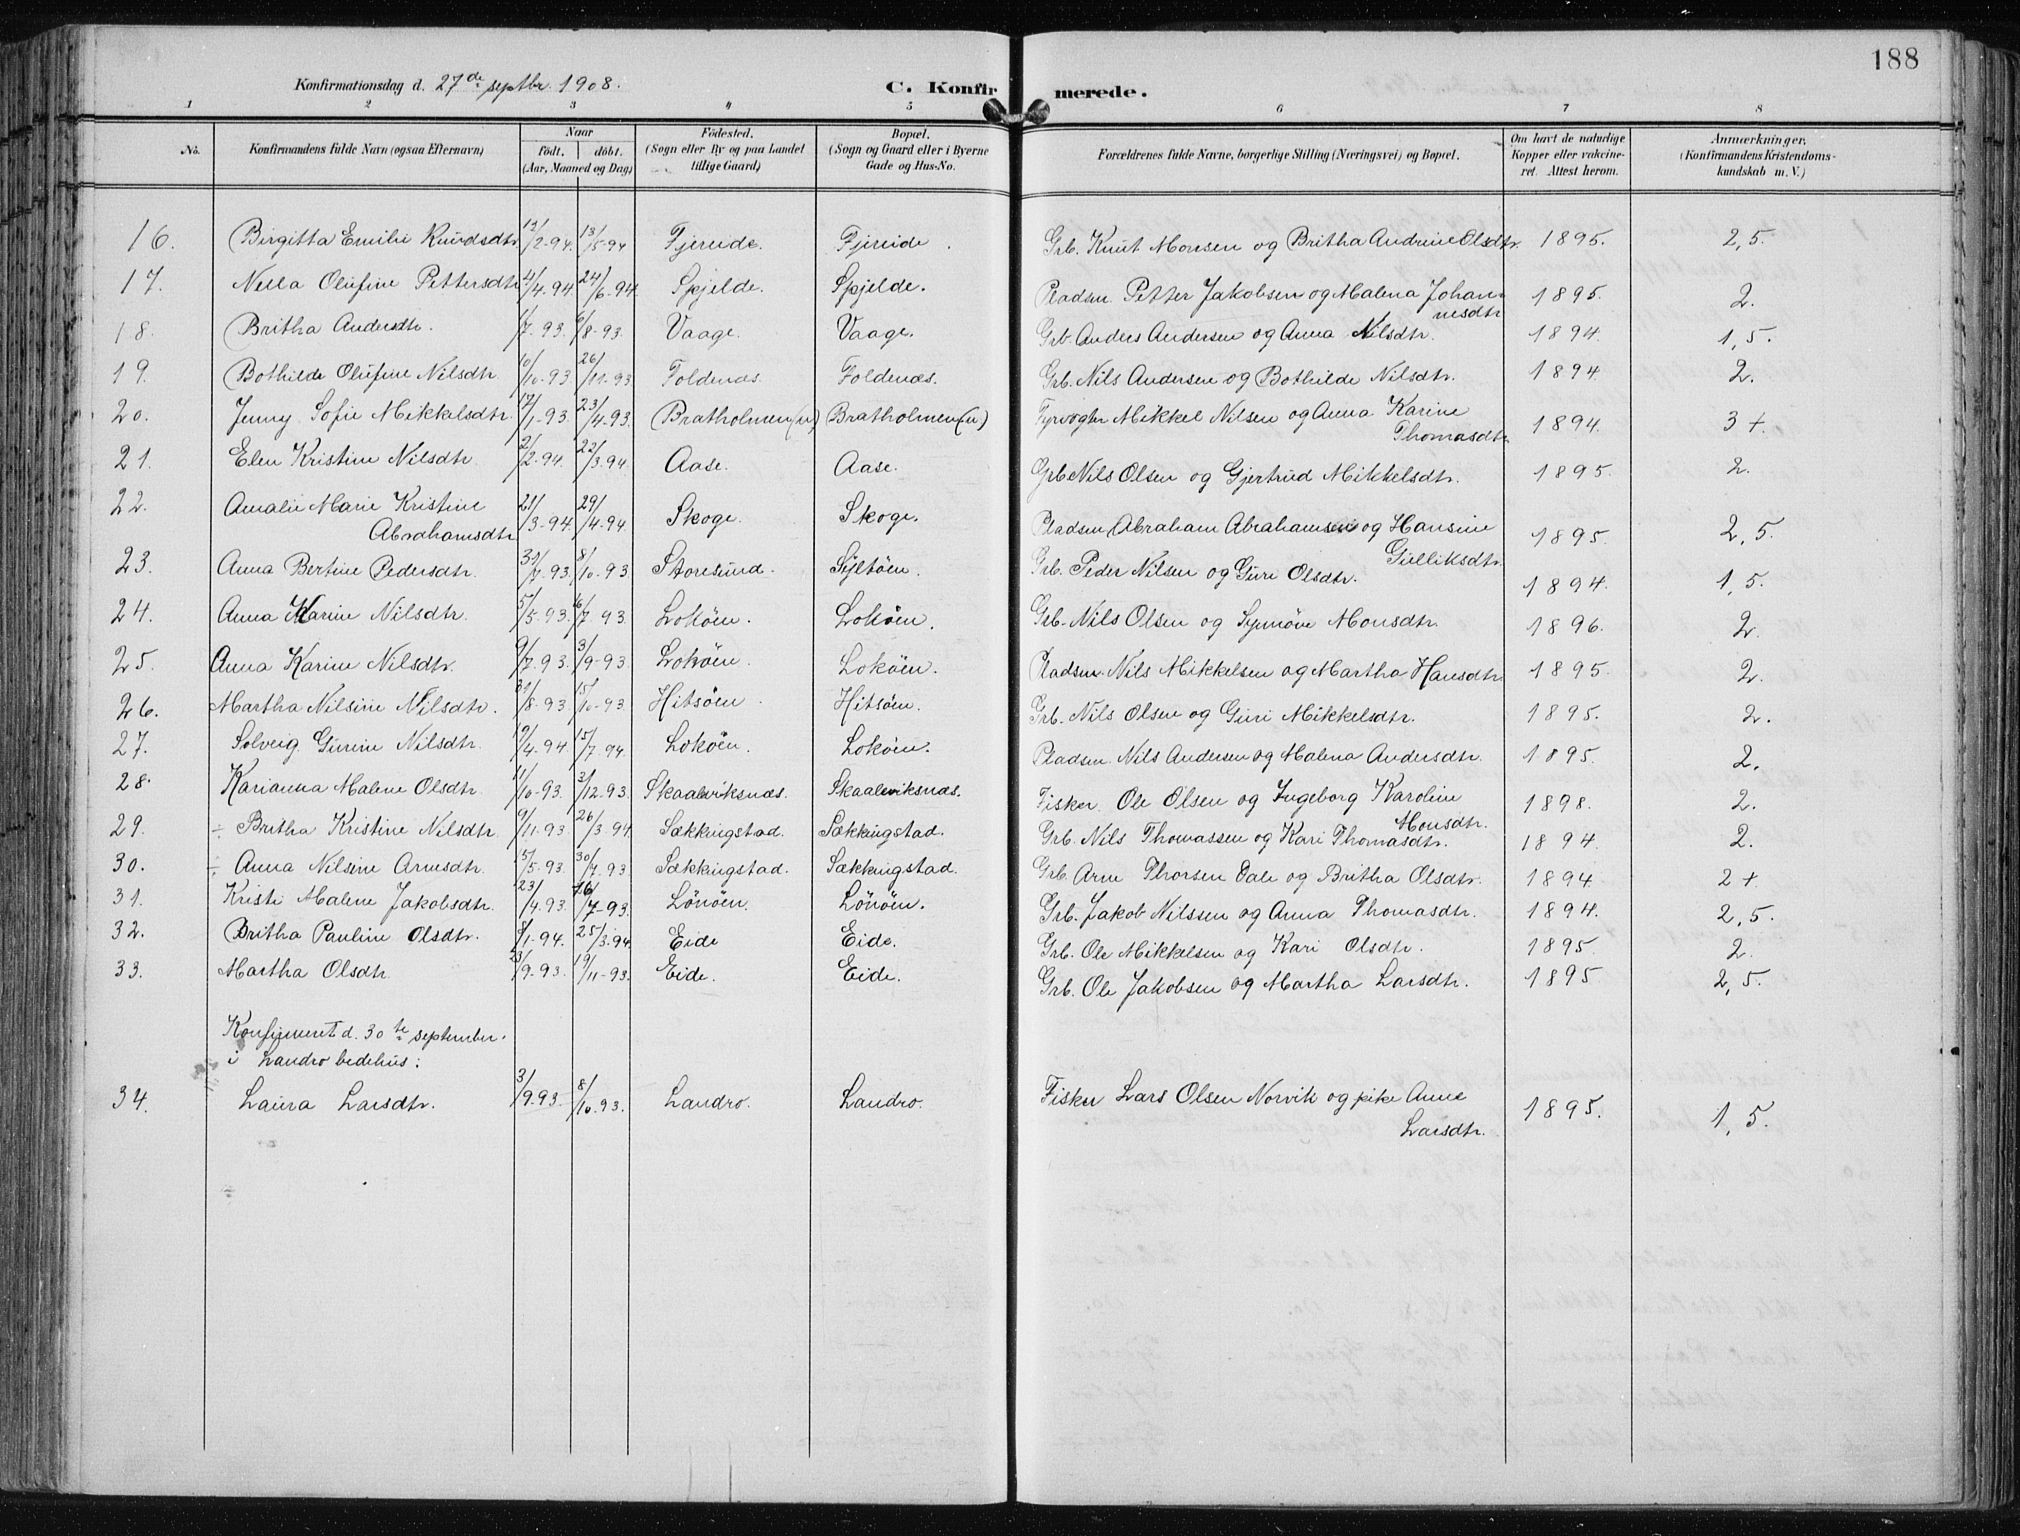 188
Konfirmationsdag d. 27de septbr. 1908.
C. Konfirmerede.
1 2 3 4 5 6 7 8
No. Konfirmandens fulde Navn (ogsaa Efternavn) Naar födt. döbt. (Aar, Maaned og Dag) Födested. (Sogn eller By og paa Landet tillige Gaard) Bopæl. (Sogn og Gaard eller i Byerne Gade og Hus-No. Forældrenes fulde Navne, borgerlige Stilling (Næringsvei) og Bopæl. Om havt de naturlige Kopper eller vakcineret. Attest herom. Anmærkninger, (Konfirmandens Kristendomskundskab m. V.)
16. Birgitta Emilie Knudsdtr. 12/2-94. 13/5-94 Fjereide. Fjereide. Grb. Knut Monsen og Britha Andrine Olsdtr. 1895. 2,5.
17. Nella Olufine Pettersdtr 4/4-94. 24/6-94. Spjelde. Spjelde. Pladsm. Petter Jakobsen og Malena Johannesdtr 1895. 2.
18. Britha Andersdtr. 1/7-93 6/8-93. Vaage. Vaage. Grb. Anders Andersen og Anna Nilsdtr. 1894. 1,5.
19. Bothilde Olufine Nilsdtr. 10/10-93. 26/11-93. Foldenæs. Foldenæs. Grb. Nils Andersen og Bothilde Nilsdtr. 1894. 2.
20. Jenny Sofie Mikkelsdtr. 17/1-93 23/4-93. Bratholmen (u) Bratholmen (u) Fyrvogter Mikkel Nilsen og Anna Karine Thomasdtr. 1894. 3+.
21. Elen Kristine Nilsdtr. 2/2-94. 22/3-94. Aase. Aase. Grb. Nils Olsen og Gjertrud Mikkelsdtr. 1895. 2.
22. Amalie Marie Kristine Abrahamsdtr 21/3-94. 29/4-94. Skoge. Skoge. Pladsm. Abraham Abrahamsen og Hansine Gulliksdtr. 1895. 2,5.
23. Anna Bertine Pedersdtr. 31/7-93. 8/10-93. Storesund. Syltöen. Grb. Peder Nilsen og Guri Olsdtr. 1894. 1,5.
24. Anna Karine Nilsdtr. 5/5-93. 16/7 93. Loköen. Loköen. Grb. Nils Olsen og Synnöve Monsdtr. 1896. 2.
25. Anna Karine Nilsdtr. 9/7.93. 3/9-93. Loköen. Loköen. Pladsm. Nils Mikkelsen og Martha Hansdtr. 1895. 2.
26. Martha Nilsine Nilsdtr. 31/8-93. 15/10-93. Hitsöen. Hitsöen. Grb. Nils Olsen og Guri Mikkelsdtr. 1895. 2.
27. Solveig Gurine Nilsdtr. 19/4.94 15/7.94. Loköen. Loköen. Pladsm. Nils Andersen og Malena Andersdtr. 1895. 2.
28. Karianna Malene Olsdtr. 11/10-93. 3/12.93. Skaaleviksnæs. Skaaleviksnæs. Fisker. Ole Olsen og Ingeborg Karoline Monsdtr. 1898. 2.
29. ÷ Britha Kristine Nilsdtr. 9/11-93 26/3-94. Sækkingstad. Sækkingstad. Grb. Nils Thomassen og Kari Thomasdtr. 1894. 2.
30. ÷ Anna Nilsine Arnesdtr. 15/5-93. 30/7.93. Sækkingstad. Sækkingstad. Grb. Arne Thorsen Dale og Britha Olsdtr. 1894. 2+
31. Kristi Malene Jakobsdtr. 23/4.93. 16/7-93. Lönöen. Lönöen. Grb. Jakob Nilssen og Anna Thomasdtr. 1894. 2,5.
32. Britha Pauline Olsdtr. 8/1-94. 25/3.94. Eide Eide. Grb. Ole Mikkelsen og Kari Olsdtr. 1895 2.
33. Martha Olsdtr. 23/9-93. 19/11-93. Eide. Eide. Grb. Ole Jakobsen og Martha Larsdtr. 1895 2,5.
Konfirmeret d. 30te september.
i Landro bedehus:
34. Laura Larsdtr. 3/9.93. 8/10.93. Landro. Landro. Fisker Lars Olsen Norvik og pike Anne Larsdtr. 1895. 1,5.